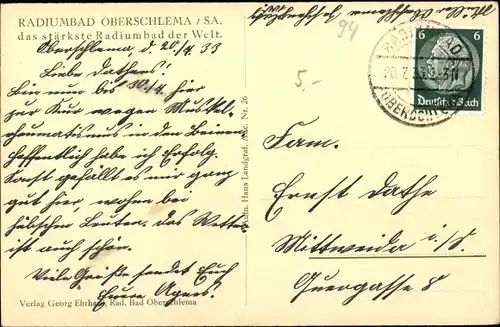 RADIUMBAD OBERSCHLEMA / SA.
das stärkste Radiumbad der Welt.
Oberschlema, d. 20/7 33
Liebe Dathens!
Bin nur bis 30./7. hier
zur Kur wegen Muskel-
rheumatismus in den Beinen
hoffentlich habe ich Erfolg.
Sonst gefällt es mir ganz
gut hier, wohnen bei
hübschen Leuten. Das Wetter
ist auch schön.
Viele Grüße sendet Euch
Eure Agnes.
Verlag Georg Ehrhardt, Rad. Bad Oberschlema
Hans Landgraf, Nr. 26
94
5,-
RADIUMBAD
20.7.33
OBERSCHLEMA
6 6
Deutsches Reich
Fam.
Ernst Dathe
Mittweida i./S.
Quergasse 8